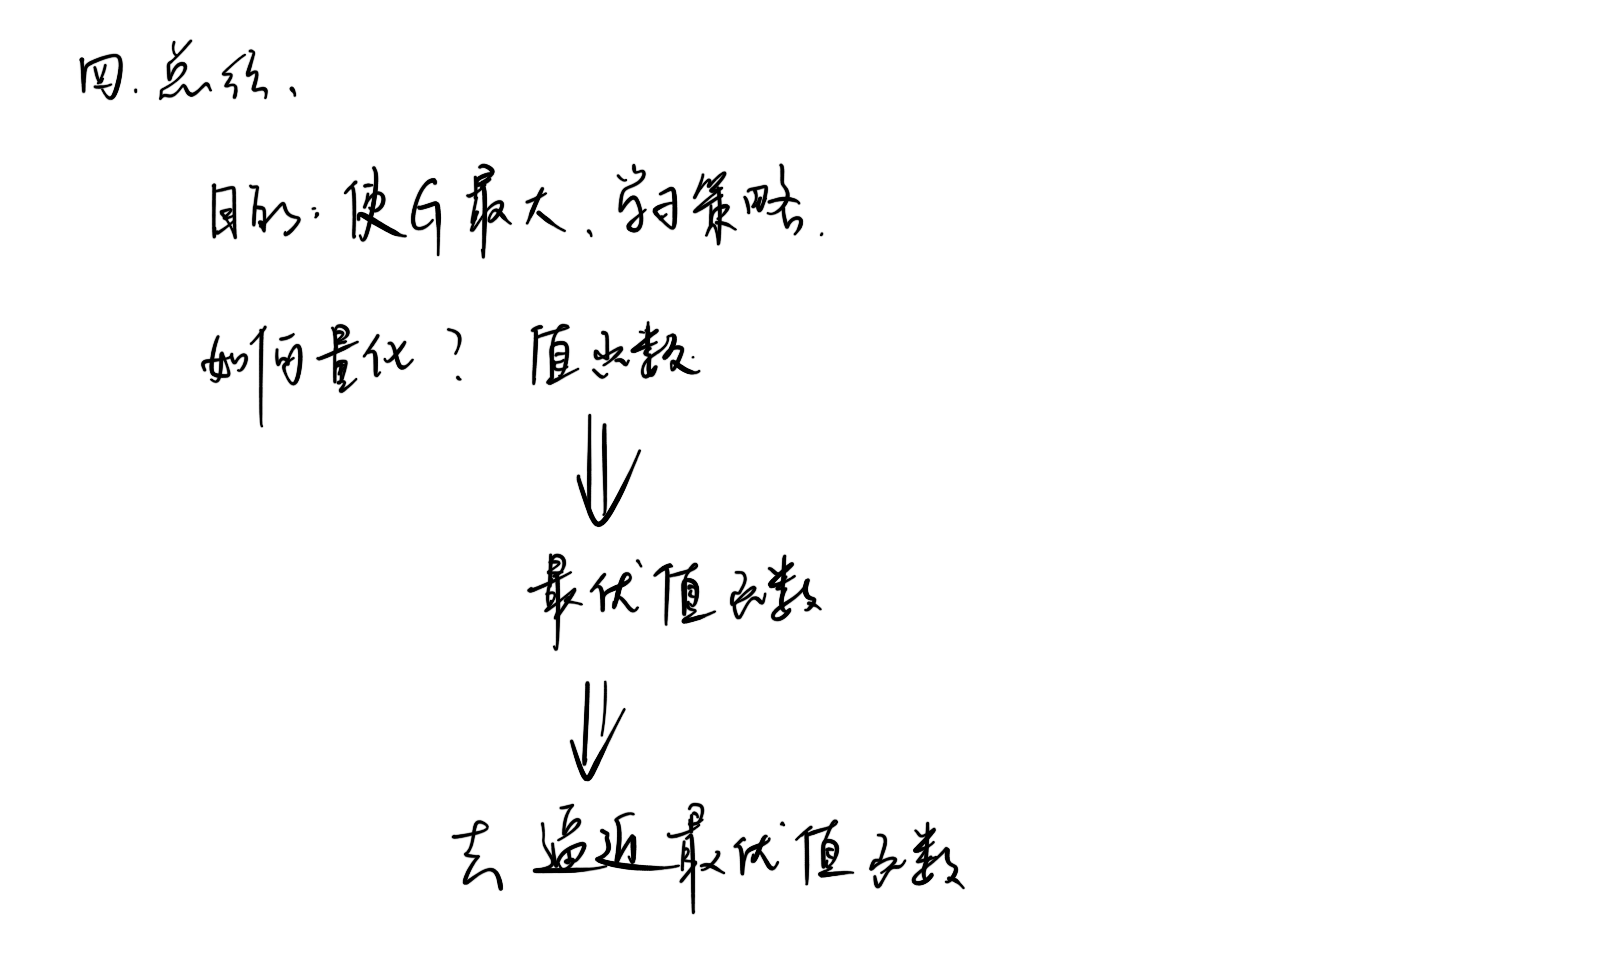 四.总结、
目的:使G最大、学习策略.
如何量化? 值函数
最优值函数
去逼近最优值函数